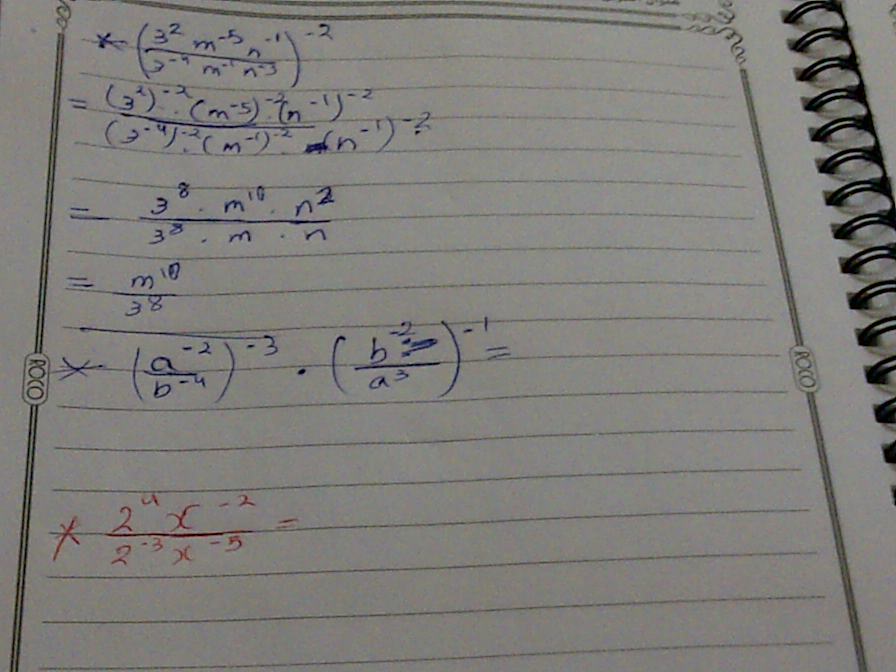 * (3² m⁻⁵ n⁻¹ / 3⁻⁴ m⁻¹ n⁻³)⁻²
= (3²)⁻² · (m⁻⁵)⁻² · (n⁻¹)⁻² / (3⁻⁴)⁻² · (m⁻¹)⁻² · (n⁻¹)⁻²
= 3⁸ · m¹⁰ · n² / 3⁸ · m · n
= m¹⁰ / 3⁸
* (a⁻² / b⁻⁴)⁻³ · (b⁻² / a³)⁻¹ =
ROCO ROCO
* 2⁴ x⁻² / 2⁻³ x⁻⁵ =